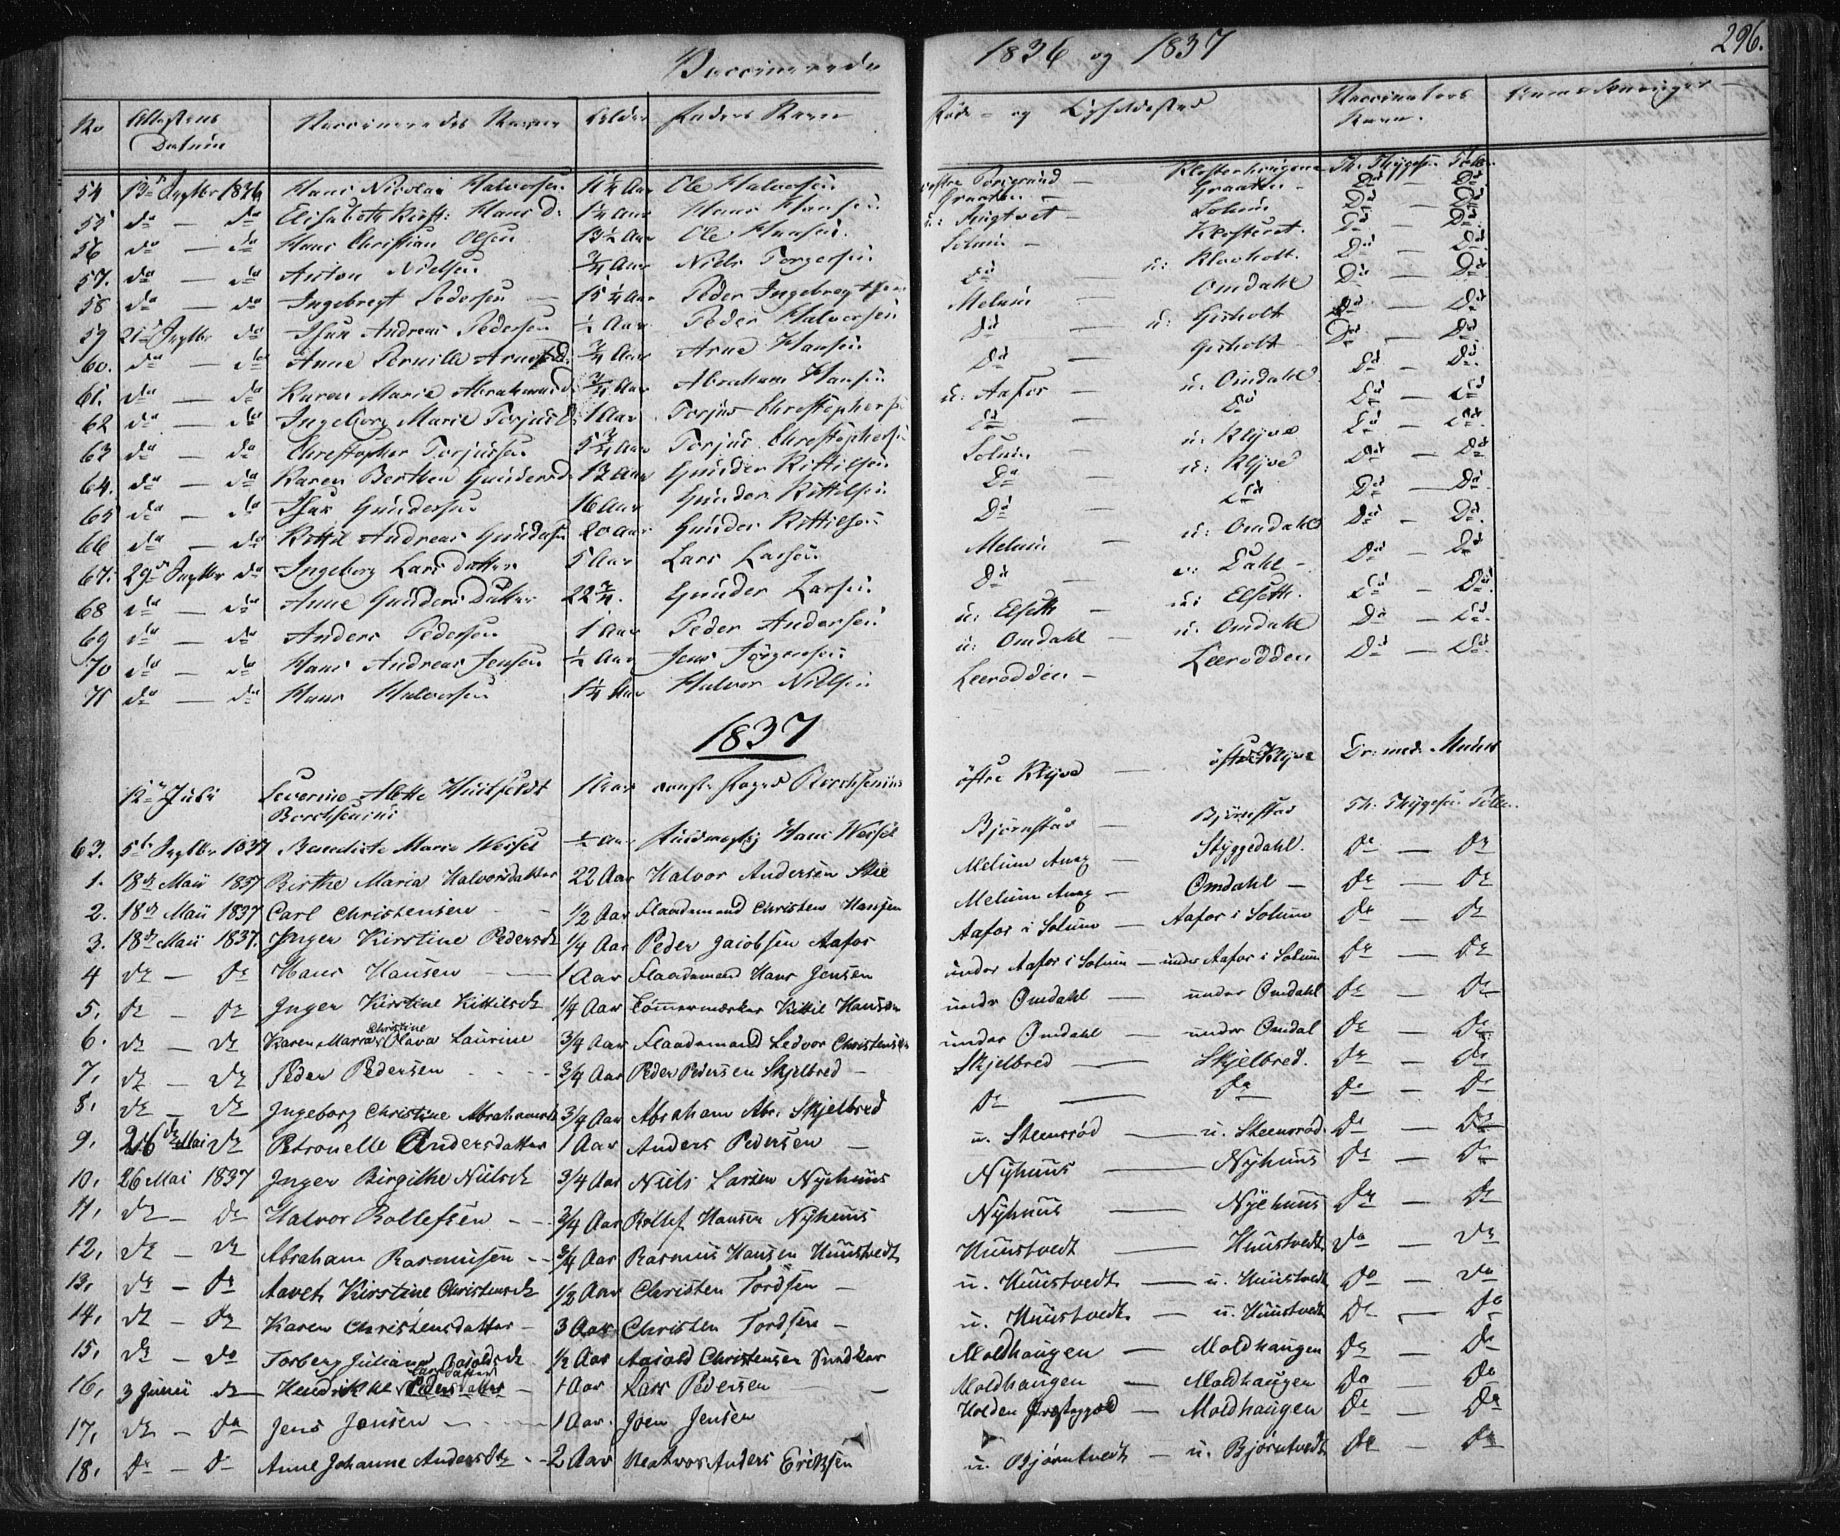 Vaccinerede 1836 og 1837 296.
No Attestens Datum Vaccineredes Navn Alder Faders Navn Føde- og Opholdssted Vaccinators Navn. Anmærkninger
54 13de Septbr 1836 Hans Nicolai Halvorsen 1 1/4 Aar Ole Halvorsen vestre Porsgrund — Klosterhaugen Th. Thygesen
55 do — do Elisabeth Kirst: Hansd. 1 1/4 Aar Hans Hansen Graaten — Graaten — Do — Do
56 do — do Hans Christian Olsen 13 1/2 Aar Ole Hansen Solum Do — Do
57. do — do Anton Nielsen 3/4 Aar Niels Torgersen Solum — Klosteret. Do — Do
58 do — do Ingebregt Pedersen 15 1/4 Aar Peder Ingebregtsen Do — u: Klovholt. Do — Do
59 21de Septbr do Isak Andreas Pedersen 1/2 Aar Peder Halvorsen Melum — Omdahl Do — Do
60. do — do Anne Pernille Arnesd. 3/4 Aar Arne Hansen Do — u: Gisholt Do — Do
61. do — do Karen Marie Abrahamsd. 3/4 Aar Abraham Hansen Do — Gisholt Do — Do
62 do — do Ingeborg Marie Torjusd. 1 Aar Torjus Christophersen u: Aafos — u: Omdahl Do — Do
63 do — do Christopher Torjussen 5 3/4 Aar Torjus Christophersen Do — Do Do — Do
64. do — do Karen Berthea Gundersd. 13 Aar Gunder Kittilsen Solum — u: Klyve Do — Do
65 do — do Isak Gundersen 16 Aar Gunder Kittelsen Do — u: Klyve Do — Do
66 do — do Kittil Andreas Gundersen 20 Aar Gunder Kittilsen Do — Do Do — Do
67. 29de Septbr do Ingeborg Larsdatter 5 Aar Lars Larsen Melum — u: Omdahl Do — Do
68 do — do Anne Gunders Datter 22 3/4. Gunder Larsen Do — u: Dahl — Do — Do
69 do — do Anders Pedersen 1 Aar Peder Andersen u: Elseth — u: Elseth. Do — Do
70 do — do Hans Andreas Jensen 1/2 Aar Jens Jørgensen u: Omdahl — u: Omdahl Do — Do
71 do — do Hans Halvorsen 1 1/4 Aar Halvor Nielsen Leerodden — Leerodden Do — Do
1837
12te Juli Severine Alette Huitfeldt Borchsenius 1 Aar Borchsenius østre Klyve — østre Klyve Dr: med: Munk
63. 5te Septbr 1837 Benedicte Marie Wessel 1/2 Aar Fuldmægtig Hans Wessel Bjørnstad — Bjørnstad Th. Thygesen
1. 18de Maii 1837 Birthe Maria Halvorsdatter 22 Aar Halvor Andersen Melum Anx — Styggedahl. Do — Do
2. 18de Maii 1837 Carl Christensen — 1/2 Aar Flaademand Christen Hansen Melum Anx — Omdahl — Do — Do
3. 18de Maii 1837. Inger Kirstine Pedersdt 1/4 Aar Peder Jacobsen Aafos Aafos i Solum — Aafos i Solum Do — Do
4 do — do Hans Hansen — 1 Aar Flaademand Hans Jensen under Aafos i Solum — under Aafos i Solum Do — Do
5. do — do Inger Kirstine Kittilsdt 1/4 Aar Tømmermærker Kittil Hansen under Omdahl — under Omdahl Do — Do
6. do — do Karen Maria Christine Olava Laurine 3/4 Aar Flaademand Ledvor Christensen under Omdahl — under Omdal Do — Do
7. do — do Peder Pedersen 3/4 Aar Peder Pedersen Skjelbred — Skjelbred — Skjelbred. Do — Do
8. do — do Ingeborg Christine Abrahamsdt 3/4 Aar Abraham Abr: Skjelbred Do — Do Do — Do
9. 26de Mai do Petronelle Andersdatter 1 Aar Anders Pedersen — u. Steensrød — u. Steensrød. Do — Do
10. 26 Mai 1837 Inger Birgithe Nielsdt 3/4 Aar Niels Larsen Nyehuus Nyhuus — Nyhuus Do — Do
11. do — do Halvor Rollefsen — 3/4 Aar Rollef Hansen Nyhuus Nyhuus — Nyehuus Do — Do
12. do — do Abraham Rasmusen — 3/4 Aar Rasmus Hansen Huustvedt Huustvedt — Huustvedt Do — Do
13. do — do Anneth Kirstine Christensdt 1/2 Aar Christen Tordsen — u. Huustvedt — u. Huustvedt Do — Do
14. do — do Karen Christensdatter — 3 Aar Christen Tordsen — u. Huustvedt — u. Huustvedt Do — Do
15. do — do Torberg Juliane 1/2 Aar Christensen Sundkar Moldhaugen — Moldhaugen Do — Do
16. 3 Junii do Hendrikke Larsdatter Pedersdatter — 1 Aar Lars Pedersen — Moldhaugen — Moldhaugen Do — Do
17. do — do Jens Jensen — 1 Aar. Joen Jensen Holden Præstegjeld — Moldhaugen Do — Do
18. do — do Anne Johanne Andersdtr — 2 Aar Matros Anders Eriksen u. Bjørntvedt — u. Bjørntvedt Do — Do